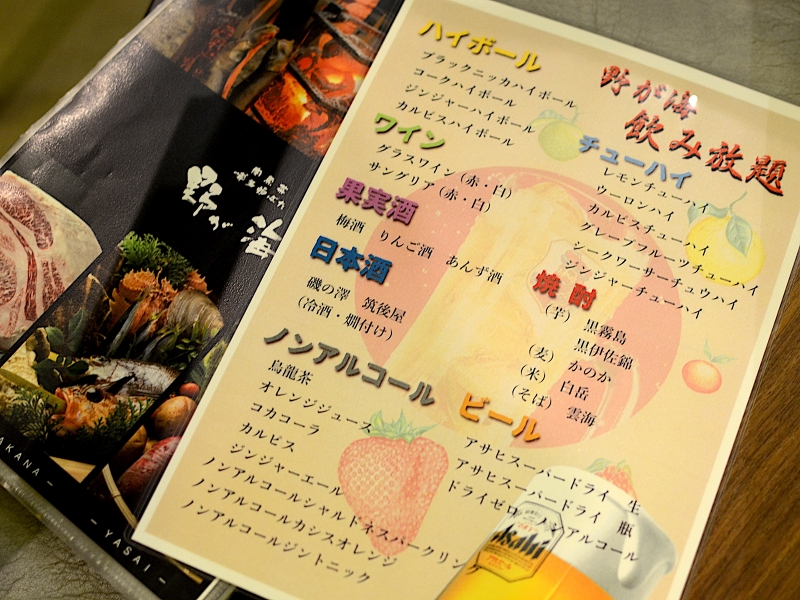 野が海
飲み放題
ハイボール
ブラックニッカハイボール
コークハイボール
ジンジャーハイボール
カルピスハイボール
ワイン
グラスワイン（赤・白）
サングリア（赤・白）
果実酒
梅酒　りんご酒　あんず酒
日本酒
磯の澤　筑後屋
（冷酒・燗付け）
ノンアルコール
烏龍茶
オレンジジュース
コカコーラ
カルピス
ジンジャーエール
ノンアルコールシャルドネスパークリング
ノンアルコールカシスオレンジ
ノンアルコールジントニック
チューハイ
レモンチューハイ
ウーロンハイ
カルピスチューハイ
グレープフルーツチューハイ
シークワーサーチュウハイ
ジンジャーチューハイ
焼酎
（芋）　黒霧島
黒伊佐錦
（麦）　かのか
（米）　白岳
（そば）　雲海
ビール
アサヒスーパードライ　生
アサヒスーパードライ　瓶
ドライゼロ　ノンアルコール
Asahi
野が海
AKANA –
– YASAI –